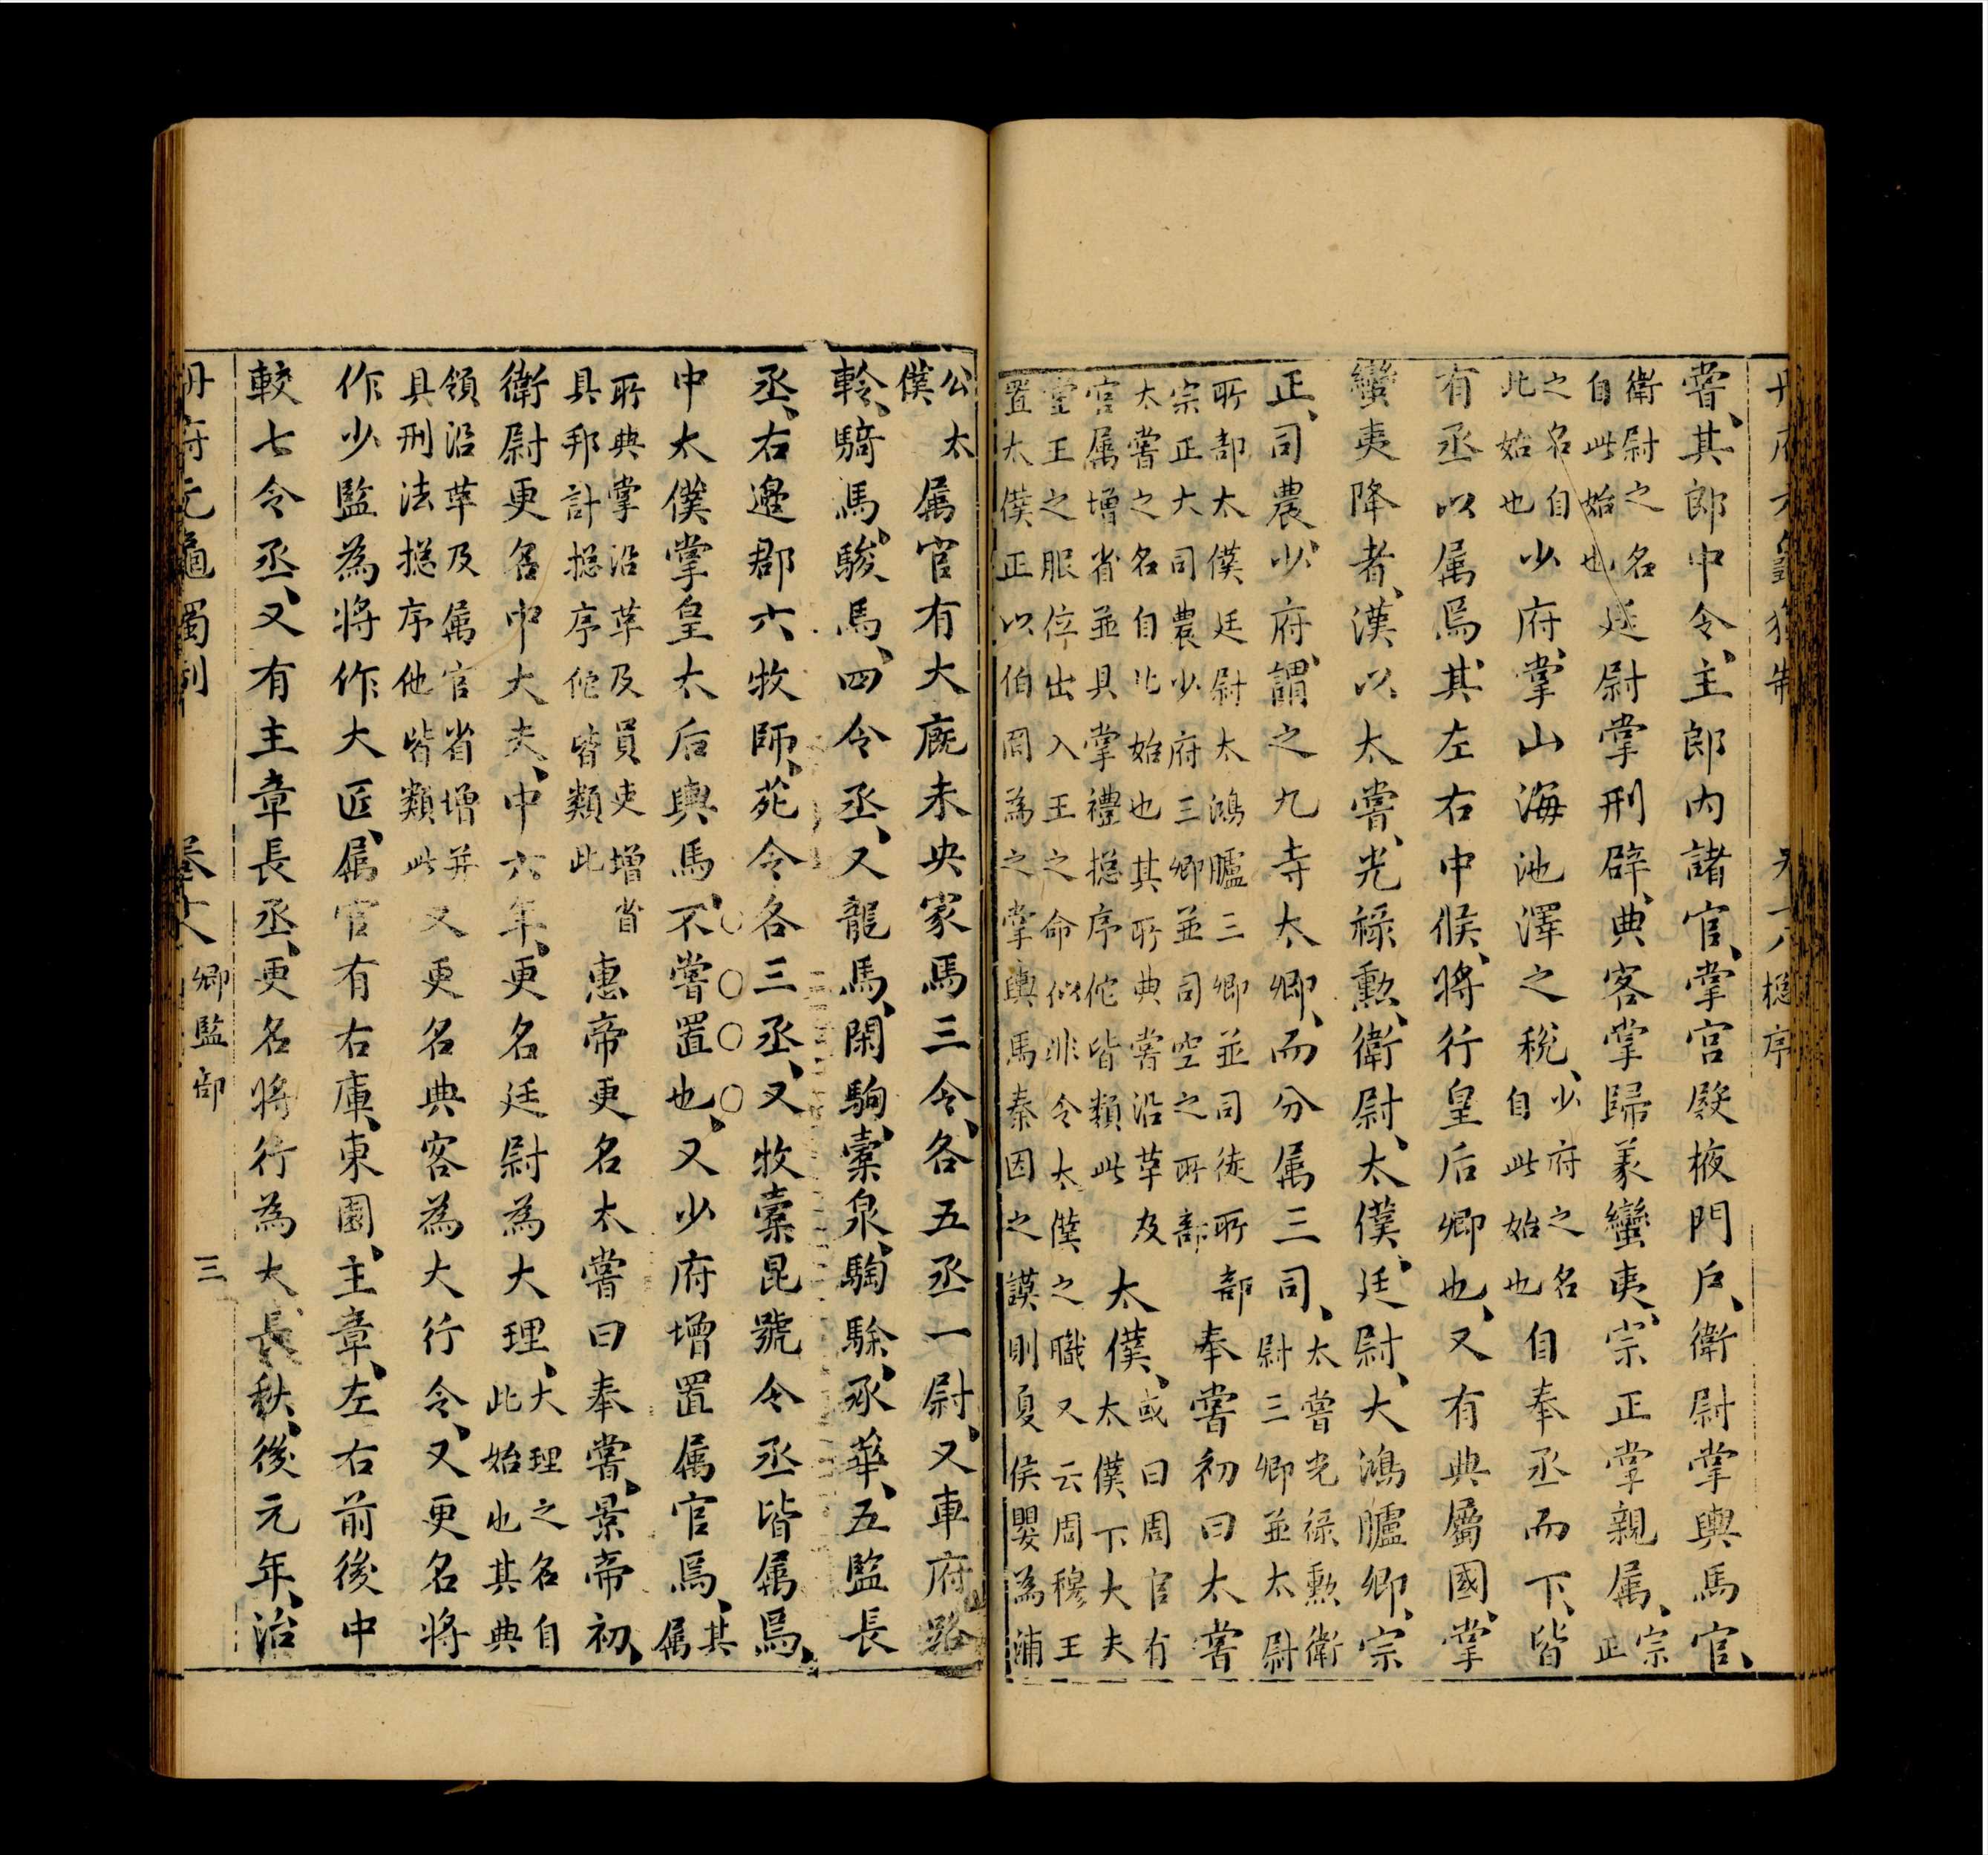 嘗其郎中令主郎内諸官掌宫殿掖門戶衛尉掌輿馬官
衛尉之名
自此始也
廷尉掌刑辟典客掌歸義蠻夷宗正掌親属
宗
正
之名自
此始也
少府掌山海池澤之稅
少府之名
自此始也
自奉丞而下皆
有丞以属焉其左右中候將行皇后卿也又有典屬國掌
蠻夷降者漢以太嘗光祿勲衛尉太僕廷尉大鴻臚卿宗
正司農少府謂之九寺太卿而分属三司
太嘗光祿勲衛
尉三卿並太尉
所部太僕廷尉太鴻臚三卿並司徒所部
宗正大司農少府三卿並司空之所部
奉嘗初曰太嘗
太嘗之名自此始也其所典嘗沿革及
官属增省並具掌禮摠序佗皆類此
太僕
或曰周官有
太僕下大夫
掌王之服位出入王之命似非令太僕之職又云周穆王
置太僕正以伯冏為之掌輿馬秦因之謨則夏侯嬰為浦
公太
僕
属官有大廐未央家馬三令各五丞一尉又車府路
軨騎馬駿馬四令丞又龍馬閑駒橐泉騊駼承華五監長
丞右邉郡六牧師苑令各三丞又牧橐昆號令丞皆属焉
中太僕掌皇太后輿馬不嘗置也又少府增置属官焉
其
属
所典掌沿革及員吏增省
具邦計摠序佗皆類此
惠帝更名太嘗曰奉嘗景帝初
衛尉更名中大夫中六年更名廷尉為大理
大理之名自
此始也其典
領沿革及属官省増并
具刑法摠序他皆類此
又更名典客為大行令又更名將
作少監為將作大匠属官有右庫東園主章左右前後中
較七令丞又有主章長丞更名將行為大長秋後元年治
册府元龜獨制
卷
卿監部
三